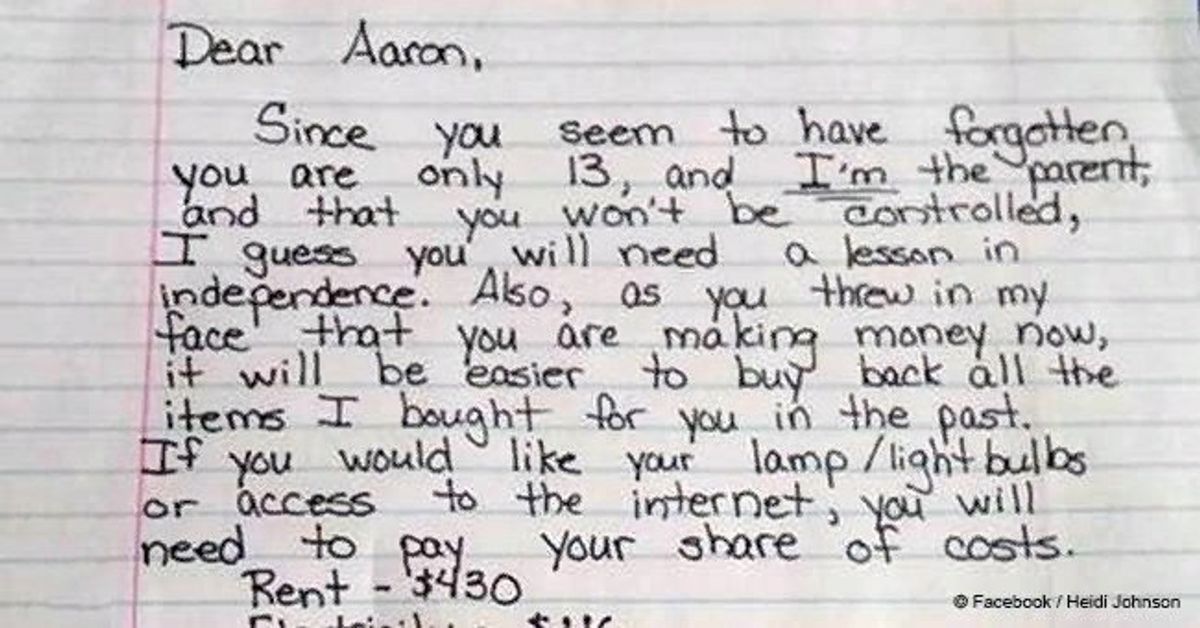 Dear Aaron,
Since you seem to have forgotten
you are only 13, and I'm the parent,
and that you won't be controlled,
I guess you will need a lesson in
independence. Also, as you threw in my
face that you are making money now,
it will be easier to buy back all the
items I bought for you in the past.
If you would like your lamp/lightbulbs
or access to the internet, you will
need to pay your share of costs.
Rent - $430
© Facebook / Heidi Johnson